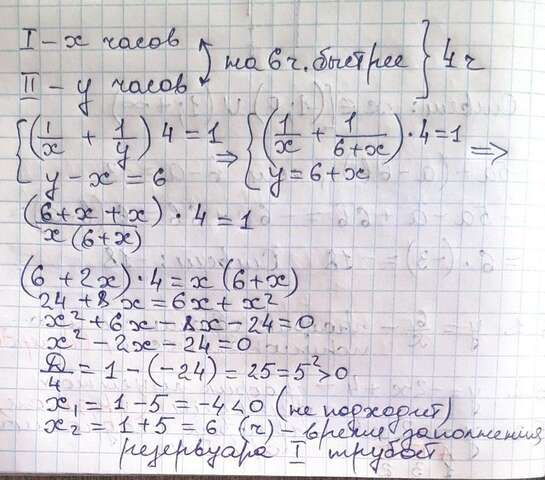 I - x часов
на 6 ч. быстрее } 4 ч
II - y часов
{ (1/x + 1/y) 4 = 1 ⇒ { (1/x + 1/(6+x)) · 4 = 1 ⇒
y - x = 6    y = 6 + x
((6 + x + x)/(x(6+x))) · 4 = 1
(6 + 2x) · 4 = x (6+x)
24 + 8x = 6x + x²
x² + 6x - 8x - 24 = 0
x² - 2x - 24 = 0
D/4 = 1 - (-24) = 25 = 5² > 0
x₁ = 1 - 5 = -4 < 0 (не подходит)
x₂ = 1 + 5 = 6 (ч) - время заполнения
резервуара I трубой